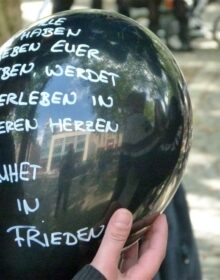 LLE
HABEN
EBEN EUER
BEN WERDET
ERLEBEN IN
EREN HERZEN
UHET
IN
FRIEDEN